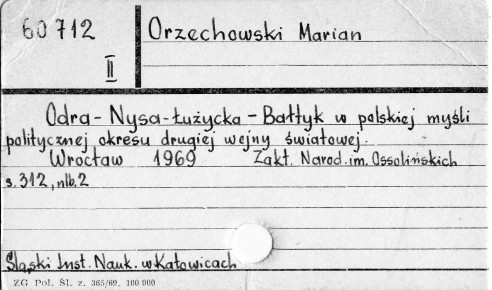 60 712
II
Orzechowski Marian
Odra - Nysa-Łużycka - Bałtyk w polskiej myśli
politycznej okresu drugiej wojny światowej.
Wrocław 1969 Zakł. Narod. im. Ossolińskich
s. 312, nlb. 2
Śląski Inst. Nauk. w Katowicach
ZG Pol. Śl. z. 365/69, 100 000